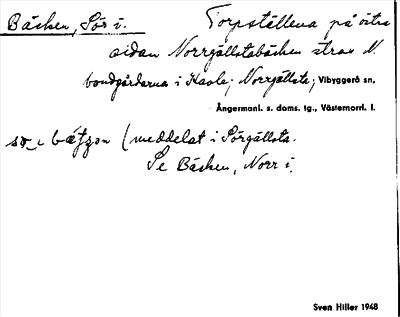 Bäcken, Sör i. Torpställena på östra
sidan Norrgällstabäcken strax N
bondgårdarna i Norrgällsta; Vibyggerå sn,
Ångermanl. s. doms. tg., Västernorrl. l.
(meddelat i Sörgällsta.
Se Bäcken, Norr i.
Sven Hiller 1948